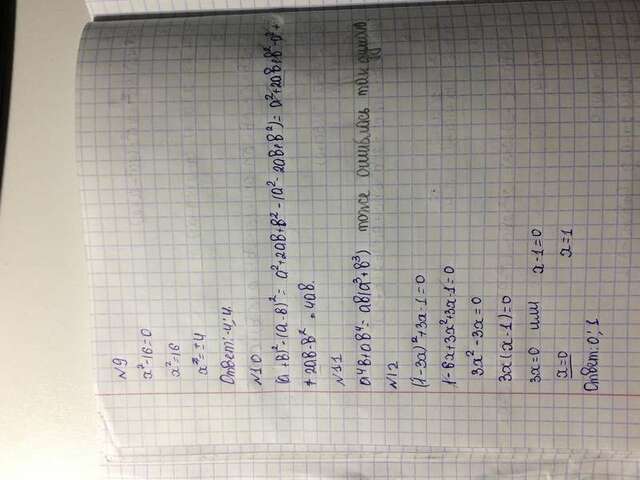 N9
x²-16=0
x²=16
x²=±4
Ответ: -4; 4.
N10
(a+b)²-(a-b)²= a²+2ab+b²-(a²-2ab+b²)= a²+2ab+b²-a²+
+2ab-b² = 4ab.
N11
a4b+ab⁴= ab(a³+b³) тоже ошиблась так думаю
N12
(1-3x)²+3x-1=0
1-6x+3x²+3x-1=0
3x²-3x=0
3x(x-1)=0
3x=0 или x-1=0
x=0 x=1
Ответ: 0; 1